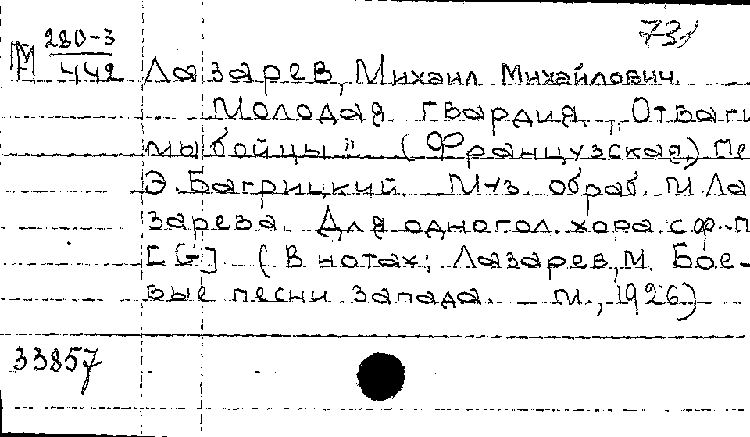 731
М 280-3
442 Лазарев, Михаил Михайлович.
Молодая гвардия. „Отваги
мы бойцы" (Французская) Пе
Э. Багрицкий. Муз. обраб. М. Ла
зарева. Для одногол. хора с ф.-п
[G] (В нотах: Лазарев, М. Бое-
вые песни запада. – М., 1926)
33857